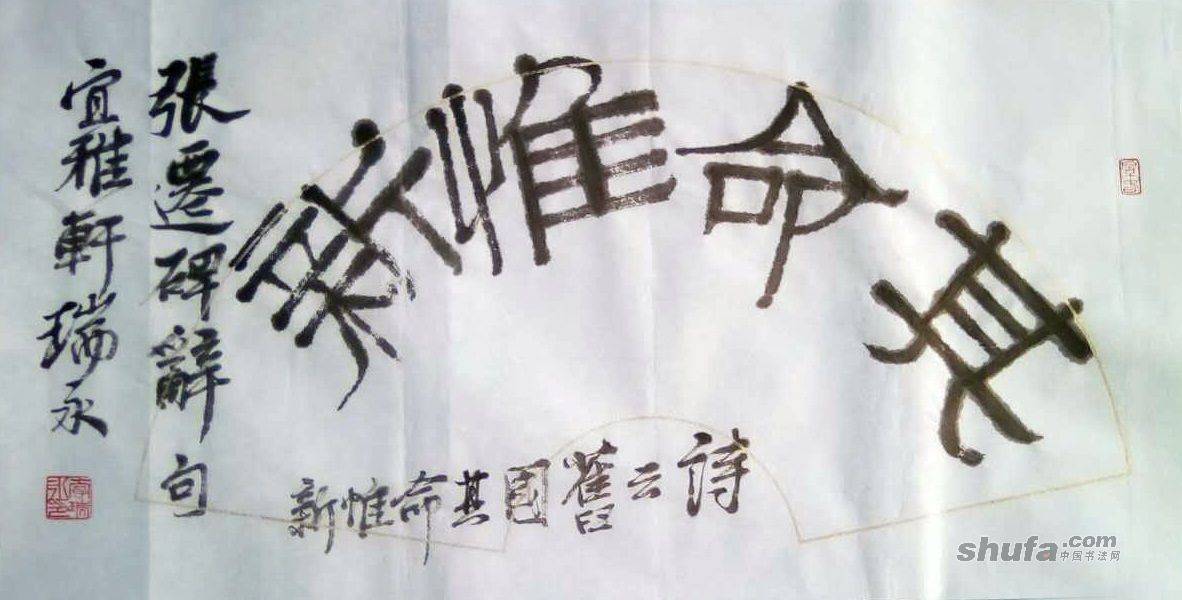 其命惟新
詩云舊国其命惟新
張遷碑辭句
宜雅軒瑞永
shufa.com
中国书法网